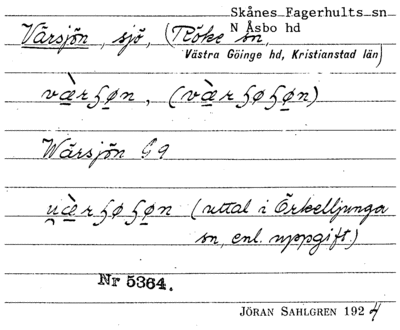 Skånes Fagerhults sn
N Åsbo hd
Värsjön, sjö, (Röke sn,
Västra Göinge hd, Kristianstad län)
væ̀rʃøn, (væ̀rʃøʃøn)
Wärsjön G9
u̯æ̀rʃøʃøn (uttal i Örkelljunga
sn, enl. uppgift.)
Nr 5364.
JÖRAN SAHLGREN 1924